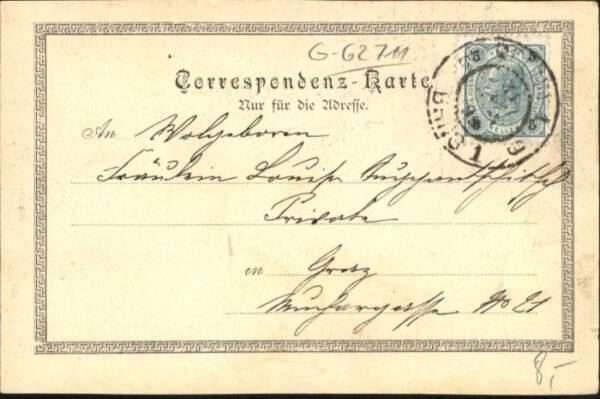 G-62711
Correspondenz-Karte
Nur für die Adresse.
An Wolgeboren
Fräulein Louise
Private
in Graz
Muchargasse No 21
8,-